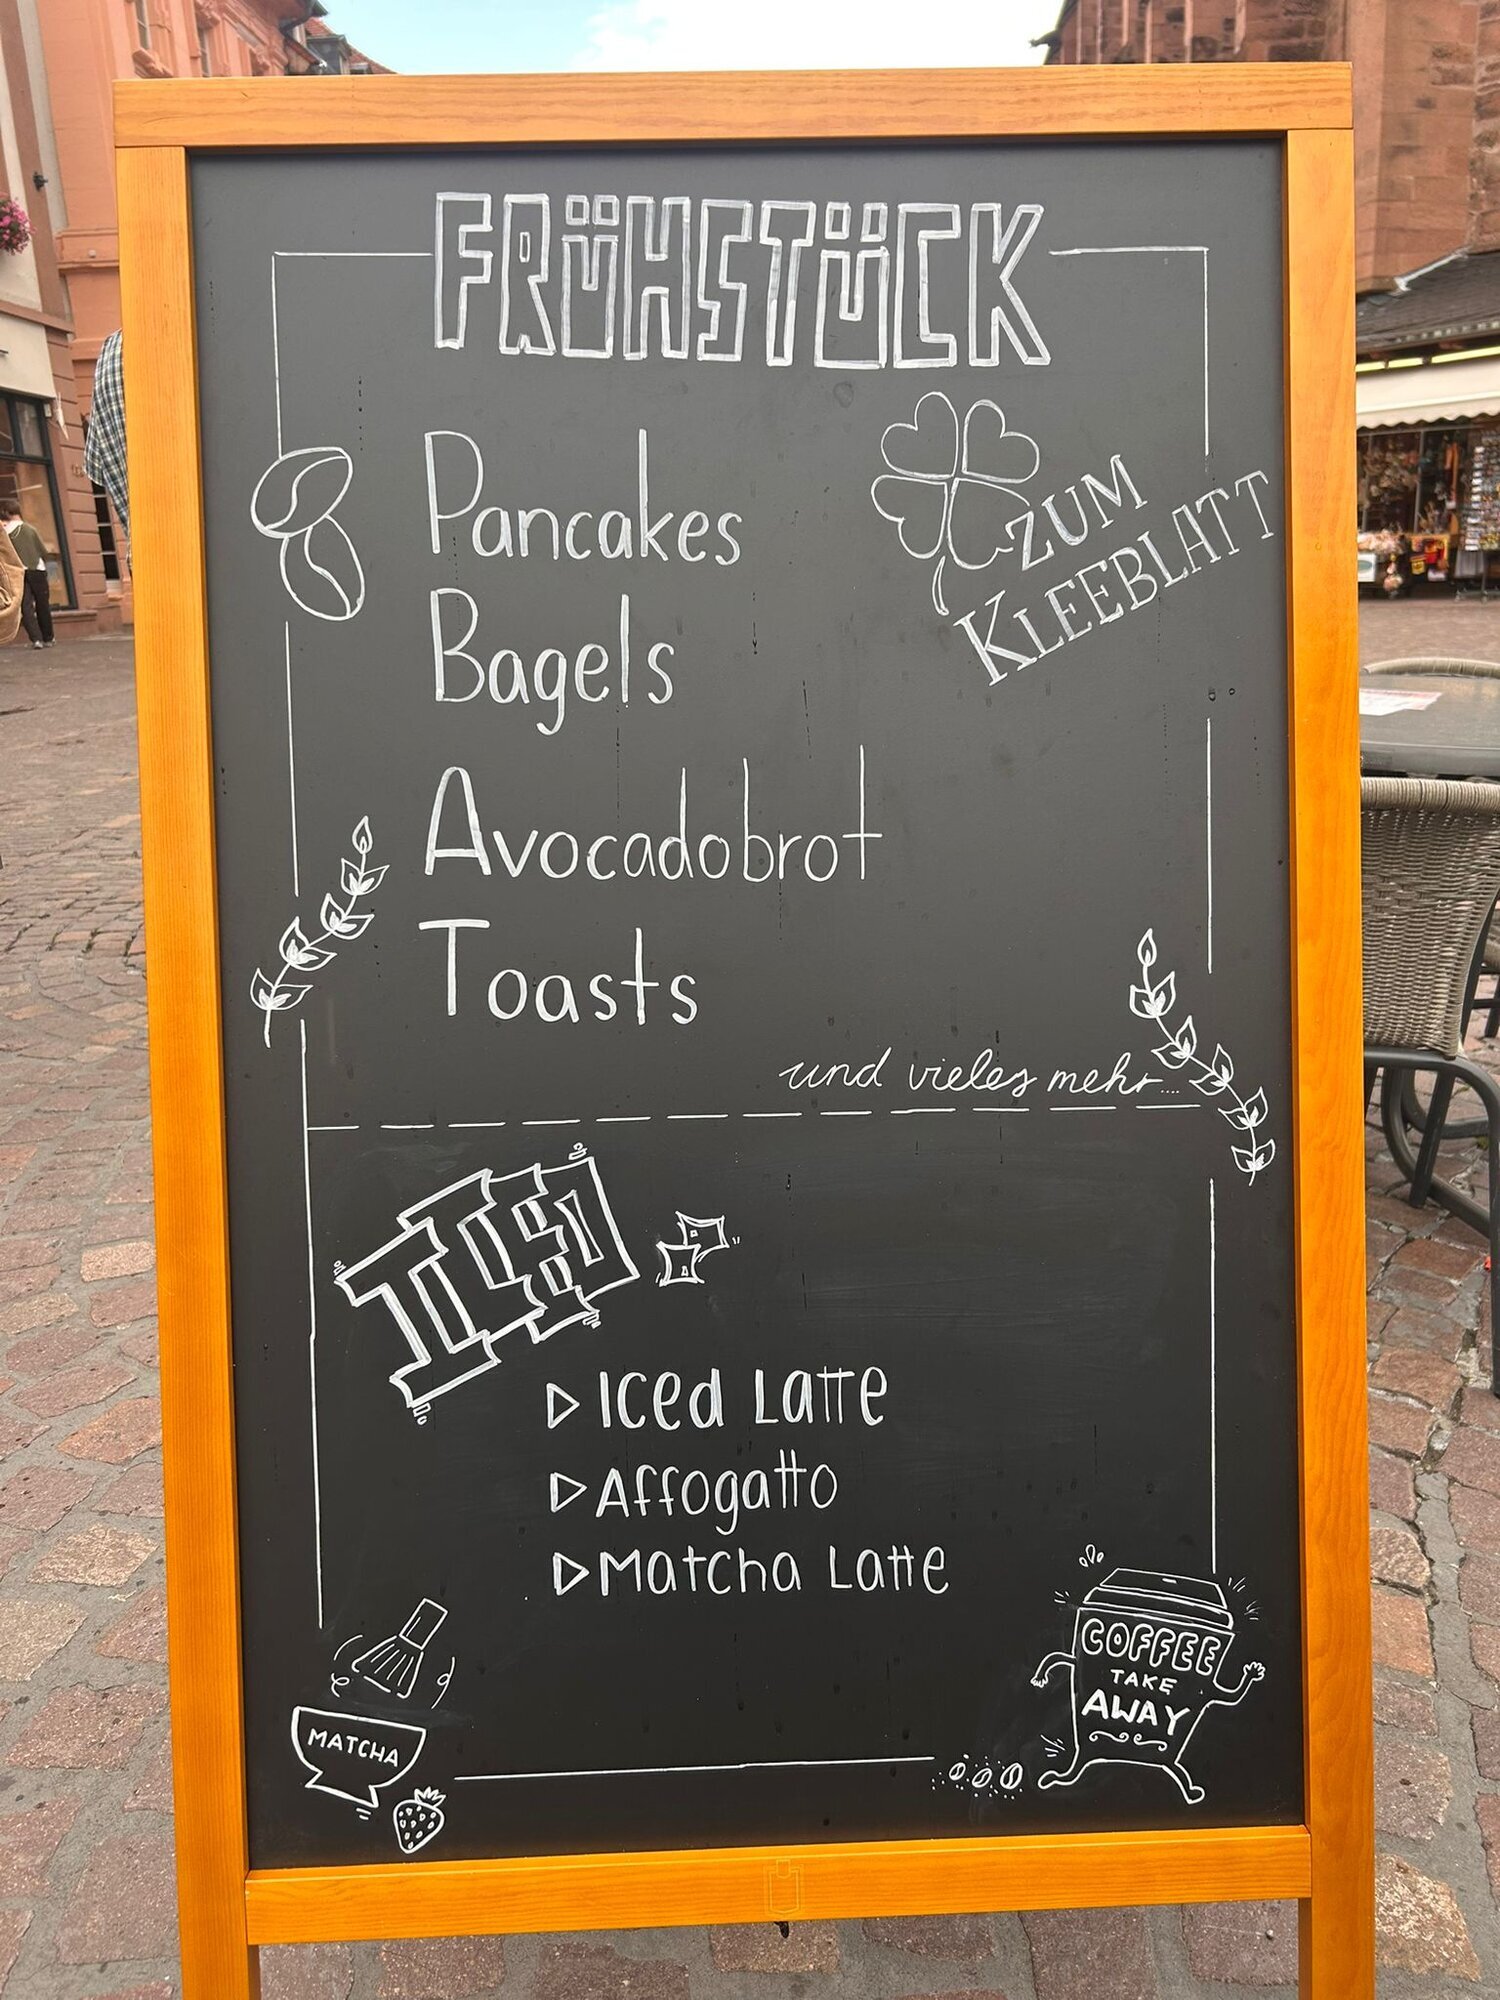 FRÜHSTÜCK
Pancakes
ZUM
KLEEBLATT
Bagels
Avocadobrot
Toasts
und vieles mehr....
ICED
▷ Iced Latte
▷ Affogatto
▷ Matcha Latte
MATCHA
COFFEE
TAKE
AWAY